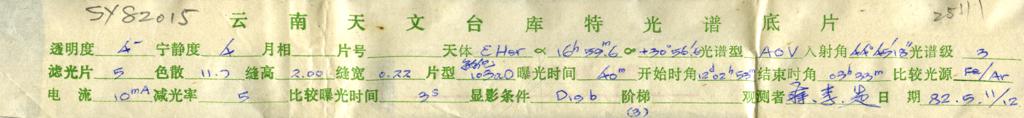 SY82015 云南天文台库特光谱底片
透明度 4⁻ 宁静度 4 月相 片号 天体 ε Her α 16ʰ 59ᵐ.6 α +30°56'.6 光谱型 A0V 入射角 光谱级 3
滤光片 5 色散 11.7 缝高 2.00 缝宽 0.22 片型 103aO 曝光时间 40ᵐ 开始时角 12ᵈ 02ʰ 53ᵐ 结束时角 03ʰ 33ᵐ 比较光源 Fe/Ar
电流 10mA 减光率 5 比较曝光时间 3ˢ 显影条件 D19b 阶梯 (3) 观测者 蒋.李. 日期 82.5.11/12